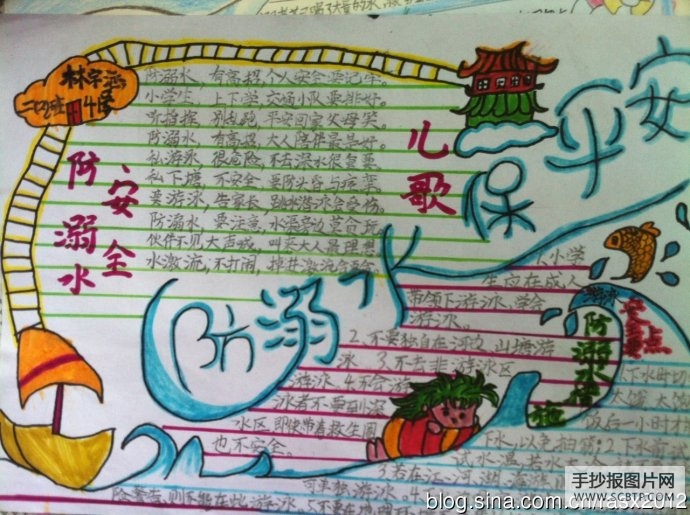 林宇涵
二四班 4号
防溺水
安全
儿歌
防溺水，有高招，个人安全要记牢。
小学生，上下学，交通小队要排好。
听指挥，别乱跑，平安回家父母笑。
防溺水，有高招，大人陪伴最是好。
私游泳，很危险，不去深水很重要。
私下塘，不安全，
要游泳，告家长，
防溺水，要注意，水渠旁边莫贪玩
伙伴不见大声喊，叫来大人最理想
水激流，不打闹，
防溺水
保平安
1、小学
生应在成人
带领下游泳、学会
游泳。
2、不要独自在河边、山塘游
泳 3、不去非游泳区
游泳。4、不会游
泳者不要到深
水区 即使带着救生圈
也不安全。
游泳
安全要点
防溺水措施
下水时切
太饿、太饱
饭后一小时才
下水，以免抽筋；2、下水前
试水温，若水
3、若在江、河、湖、海游
则不能在此游泳。
手抄报图片网
WWW.SCBTP.COM
blog.sina.com.cn/rasx2012